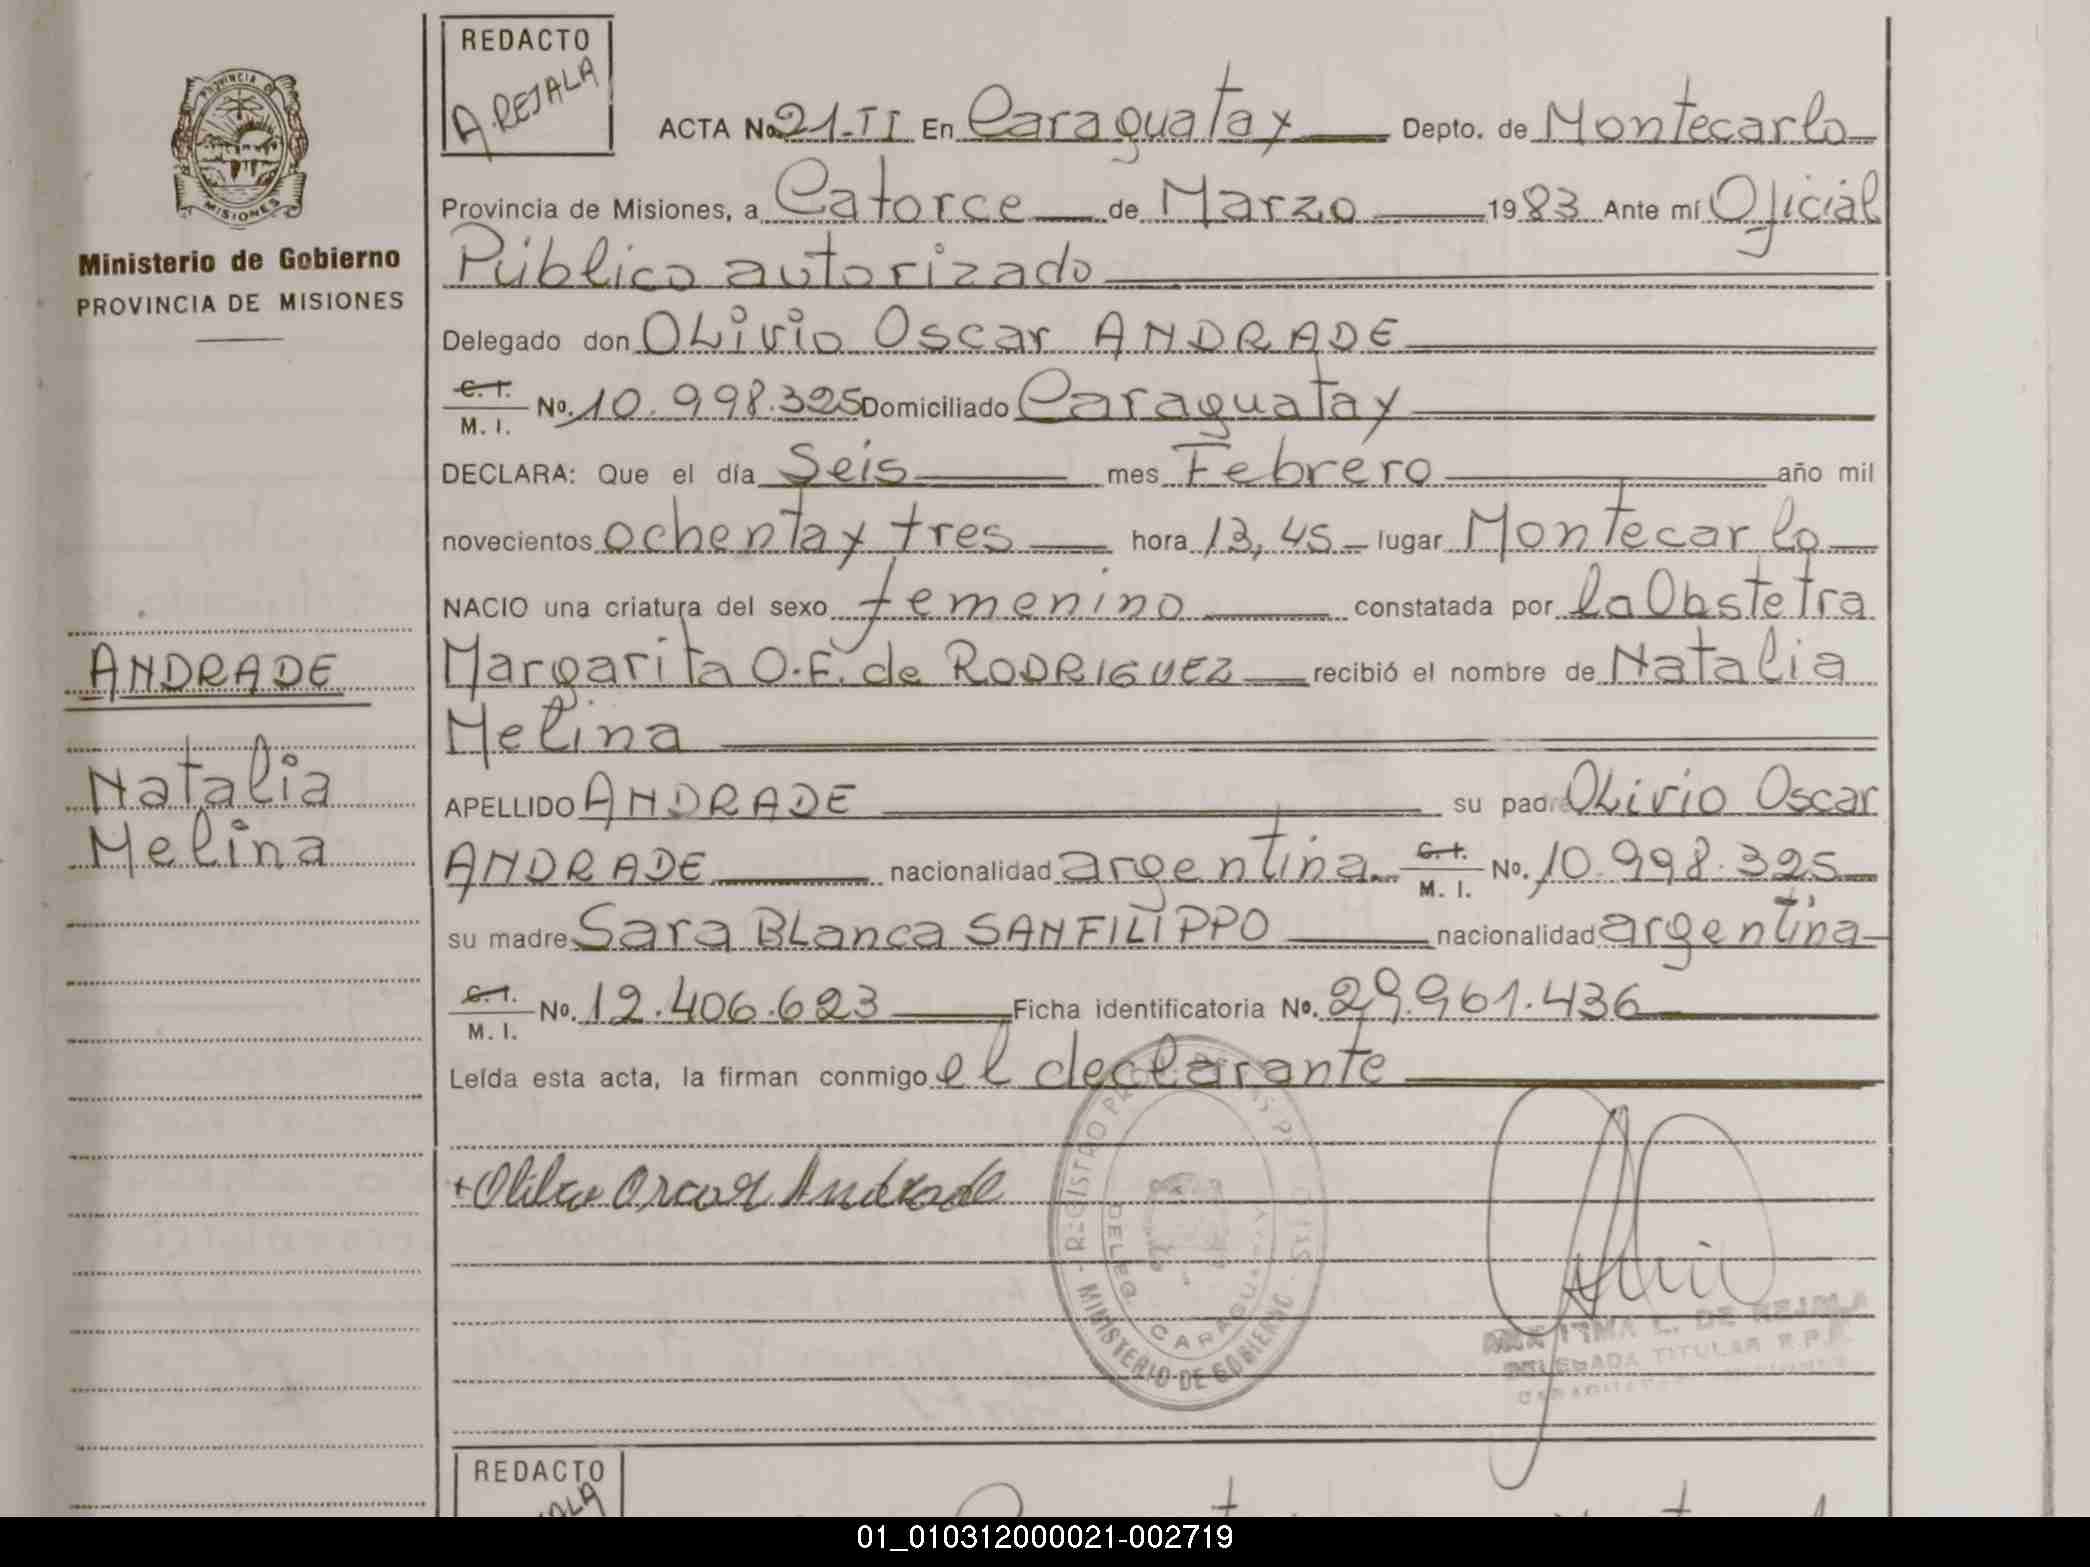 REDACTO
A. REJALA
PROVINCIA DE
MISIONES
Ministerio de Gobierno
PROVINCIA DE MISIONES
ACTA No. 21-II En Caraguatay Depto. de Montecarlo
Provincia de Misiones, a Catorce de Marzo 1983 Ante mí Oficial
Público autorizado
Delegado don OLivio Oscar ANDRADE
C. I.
M. I. No. 10.998.325 Domiciliado Caraguatay
DECLARA: Que el día Seis mes Febrero año mil
novecientos ochenta y tres hora 13,45 lugar Montecarlo
NACIO una criatura del sexo femenino constatada por la Obstetra
Margarita O.F. de RODRIGUEZ recibió el nombre de Natalia
Melina
APELLIDO ANDRADE su padre OLivio Oscar
ANDRADE nacionalidad argentina C. I. M. I. No. 10.998.325
su madre Sara BLanca SANFILIPPO nacionalidad argentina
C. I.
M. I. No. 12.406.623 Ficha identificatoria No. 29.961.436
Leída esta acta, la firman conmigo el declarante
ANDRADE
Natalia
Melina
Oscar Andrade
REGISTRO
MINISTERIO DE GOBIERNO
DELEG. CARAGUATAY
L. DE REJALA
DELEGADA TITULAR R.P.P.
REDACTO
01_010312000021-002719